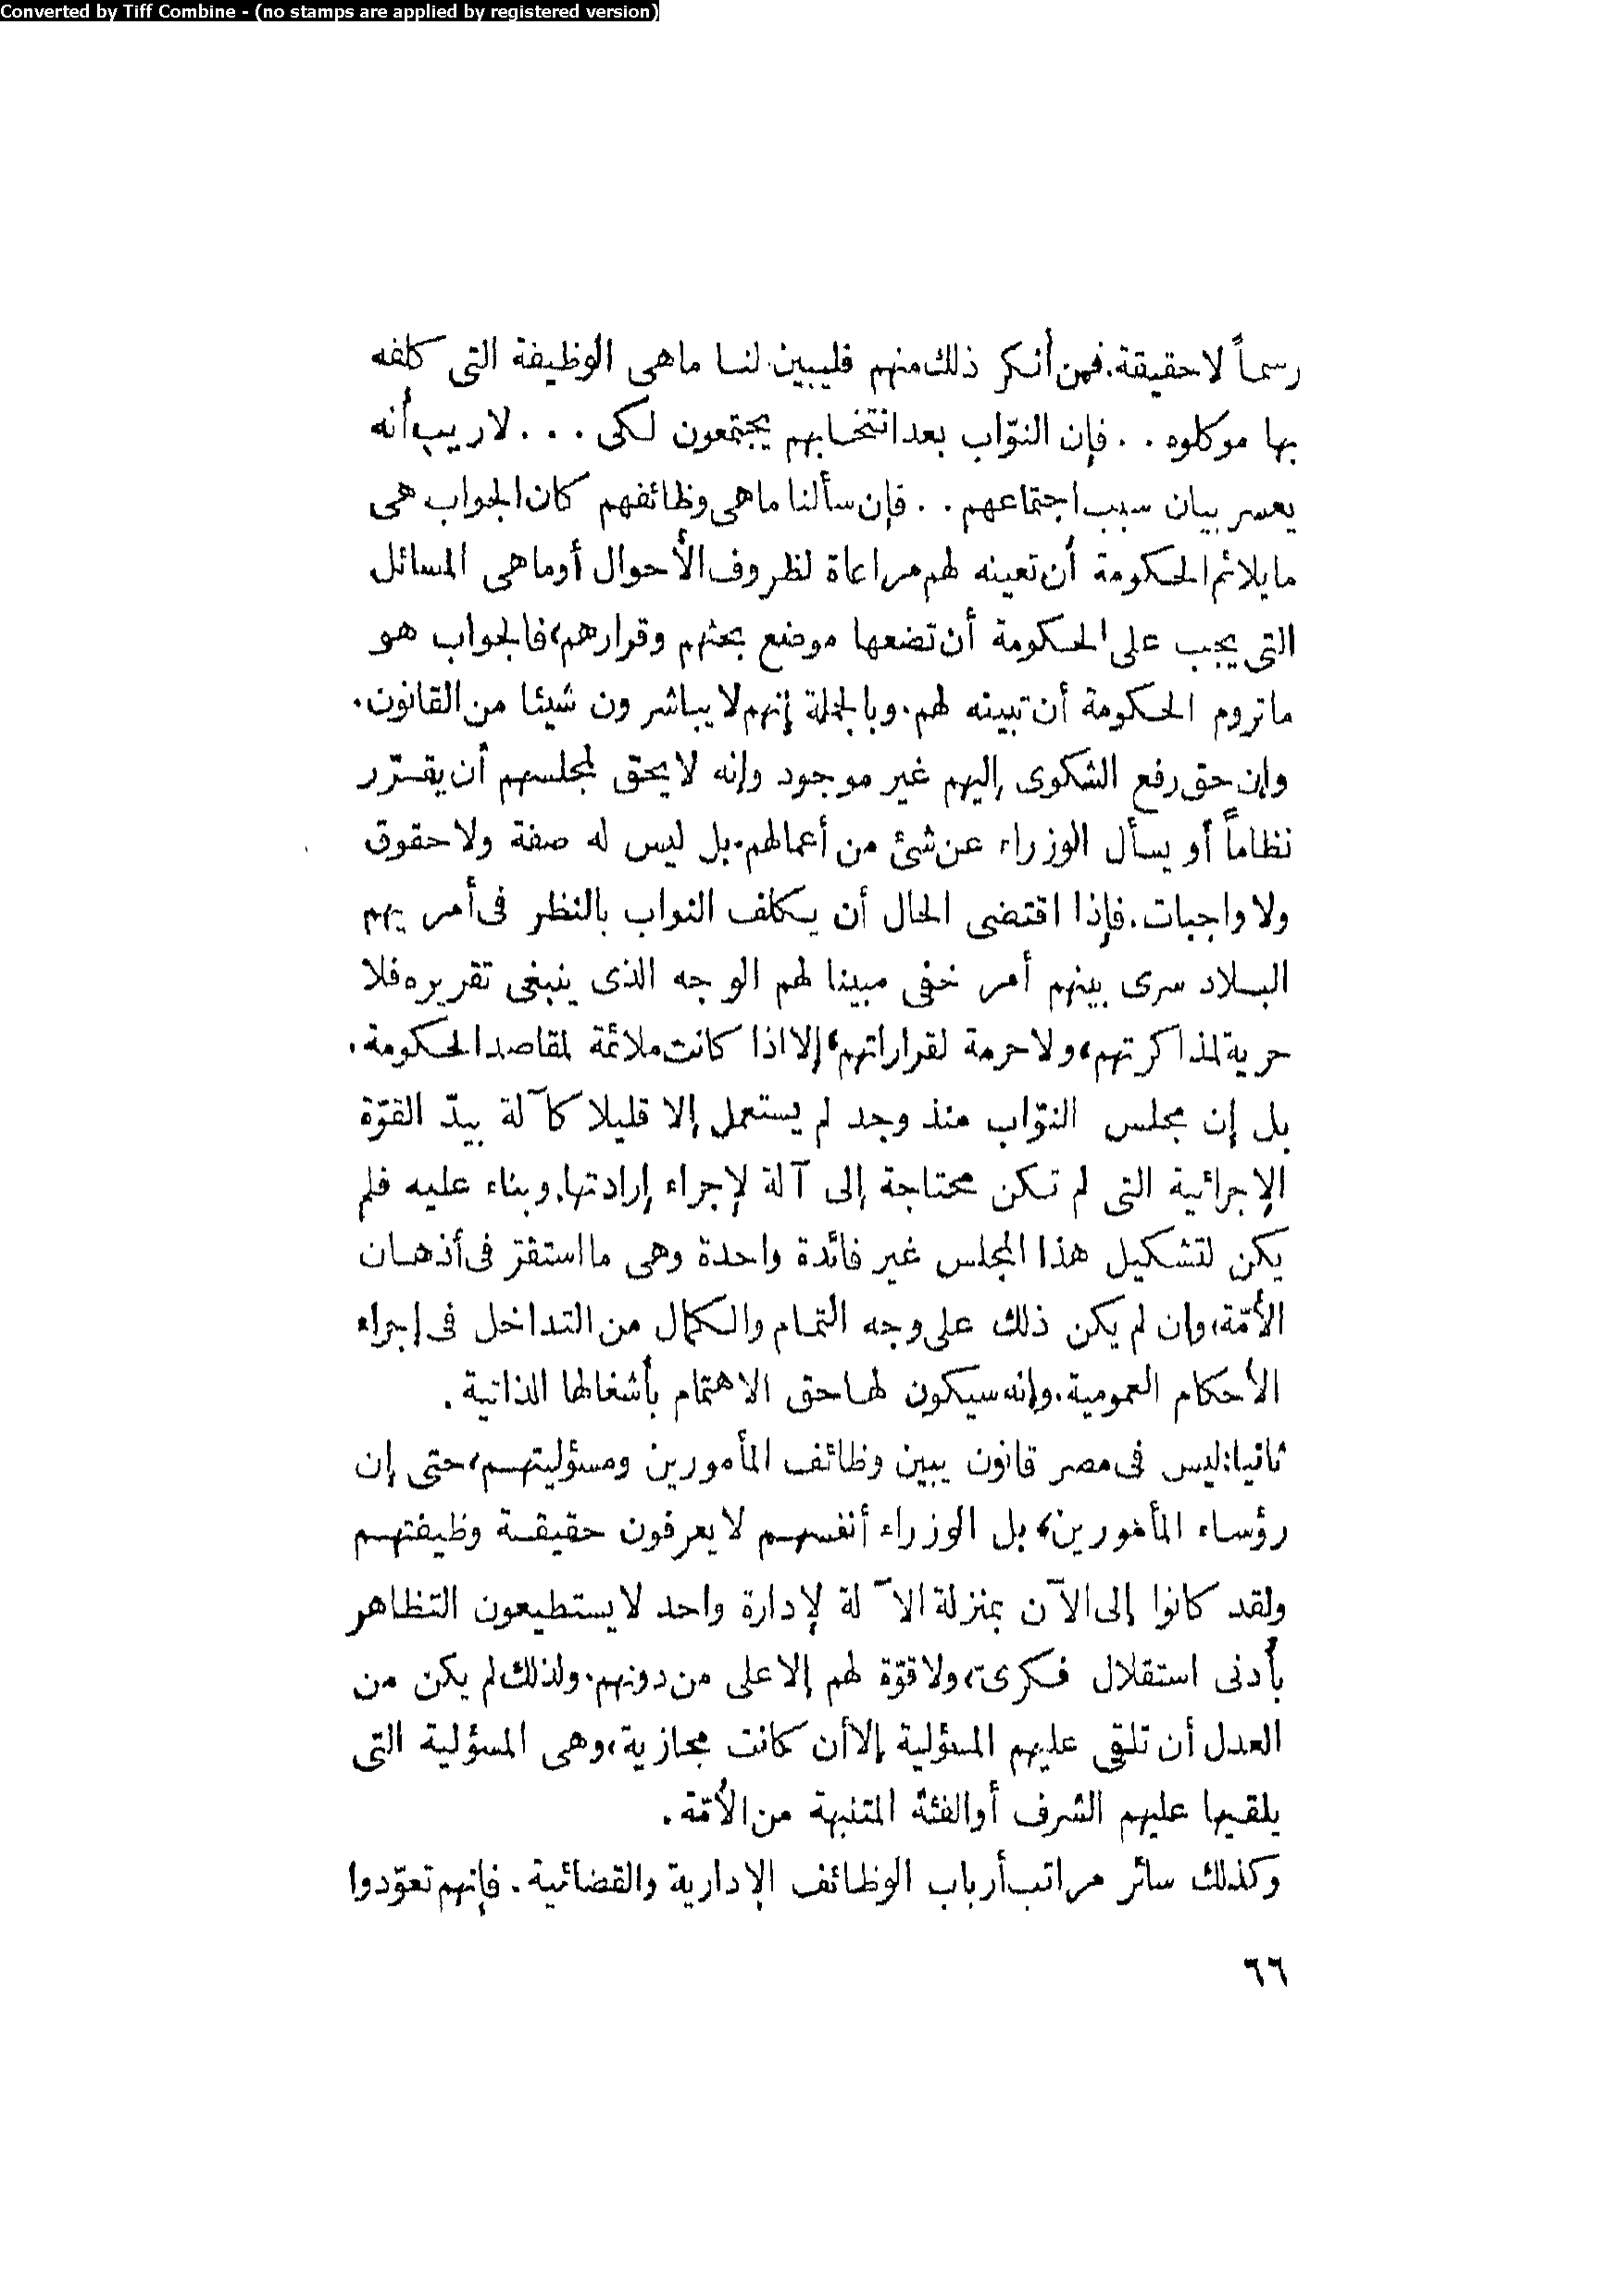 Converted by Tiff Combine - (no stamps are applied by registered version)
رسماً لا حقيقة. فمن أنكر ذلك منهم فليبين لنا ماهى الوظيفة التى كلفه
بها موكلوه . . فإن النوّاب بعد انتخابهم يجتمعون لكى . . . لا ريب أنه
يعسر بيان سبب اجتماعهم . . فإن سألنا ماهى وظائفهم كان الجواب هى
ما يلائم الحكومة أن تعينه لهم مراعاة لظروف الأحوال أو ماهى المسائل
التى يجب على الحكومة أن تضعها موضع بحثهم وقرارهم، فالجواب هو
ما تروم الحكومة أن تبينه لهم. وبالجملة إنهم لا يباشرون شيئا من القانون.
وإن حق رفع الشكوى إليهم غير موجود وإنه لا يحق لمجلسهم أن يقرّر
نظاماً أو يسأل الوزراء عن شئ من أعمالهم. بل ليس له صفة ولا حقوق
ولا واجبات. فإذا اقتضى الحال أن يكلف النواب بالنظر فى أمر يهم
البلاد سرى بينهم أمر خفى مبينا لهم الوجه الذى ينبغى تقريره فلا
حرية لمذاكرتهم، ولا حرمة لقراراتهم، إلا اذا كانت ملائمة لمقاصد الحكومة.
بل إن مجلس النوّاب منذ وجد لم يستعمل إلا قليلا كآلة بيدّ القوّة
الإجرائية التى لم تكن محتاجة إلى آلة لإجراء إرادتها. وبناء عليه فلم
يكن لتشكيل هذا المجلس غير فائدة واحدة وهى ما استقرّ فى أذهان
الأمّة، وان لم يكن ذلك على وجه التمام والكمال من التداخل فى إجراء
الأحكام العمومية. وإنه سيكون لها حق الاهتمام بأشغالها الذاتية .
ثانيا: ليس فى مصر قانون يبين وظائف المأمورين ومسؤليتهم، حتى إن
رؤساء المأمورين، بل الوزراء أنفسهم لا يعرفون حقيقة وظيفتهم
ولقد كانوا إلى الآن بمنزلة الآلة لإدارة واحد لا يستطيعون التظاهر
بأدنى استقلال فكرى، ولا قوّة لهم إلا على من دونهم. ولذلك لم يكن من
العدل أن تلقى عليهم المسؤلية إلا أن كانت مجازية، وهى المسؤلية التى
يلقيها عليهم الشرف أو الفئة المتنبهة من الأمّة .
وكذلك سائر مراتب أرباب الوظائف الإدارية والقضائية . فإنهم تعوّدوا
٦٦